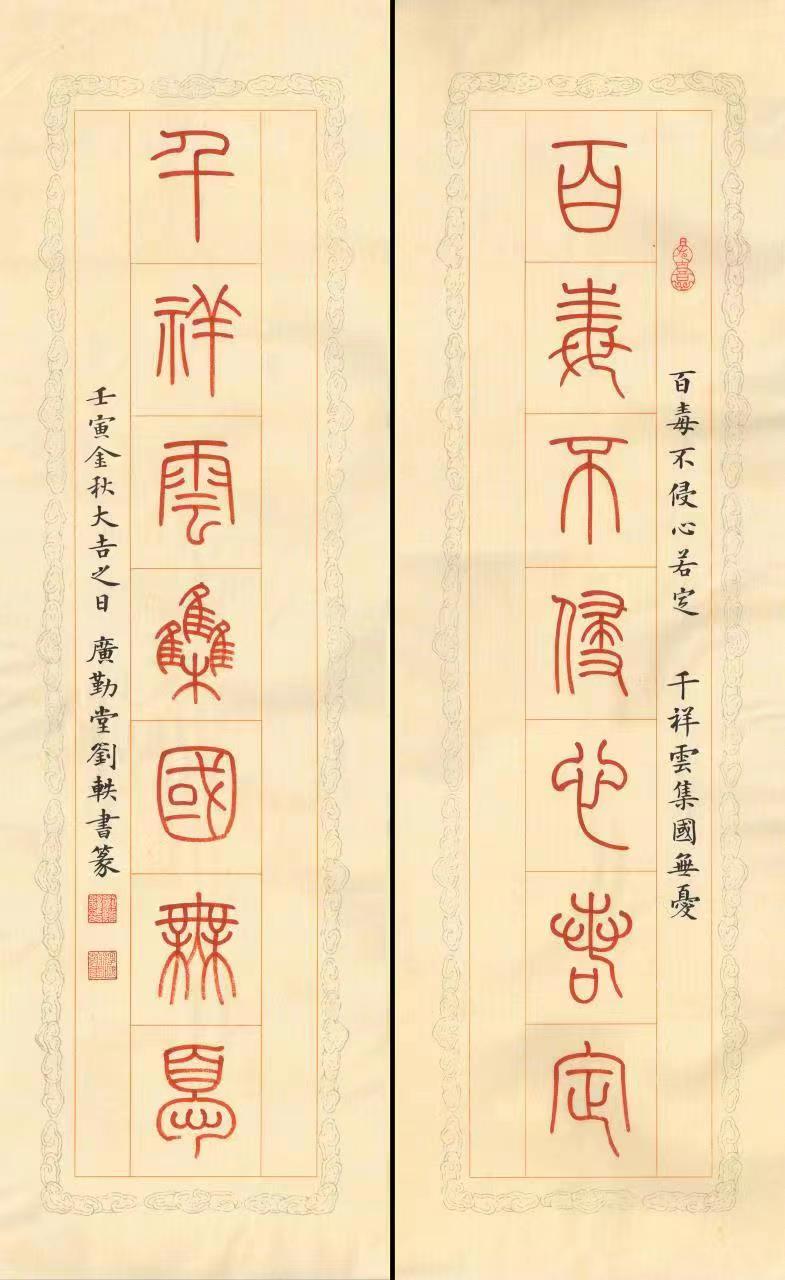 百毒不侵心若定 千祥雲集國無憂
百毒不侵心若定
千祥雲集國無憂
壬寅金秋大吉之日 廣勤堂劉軼書篆